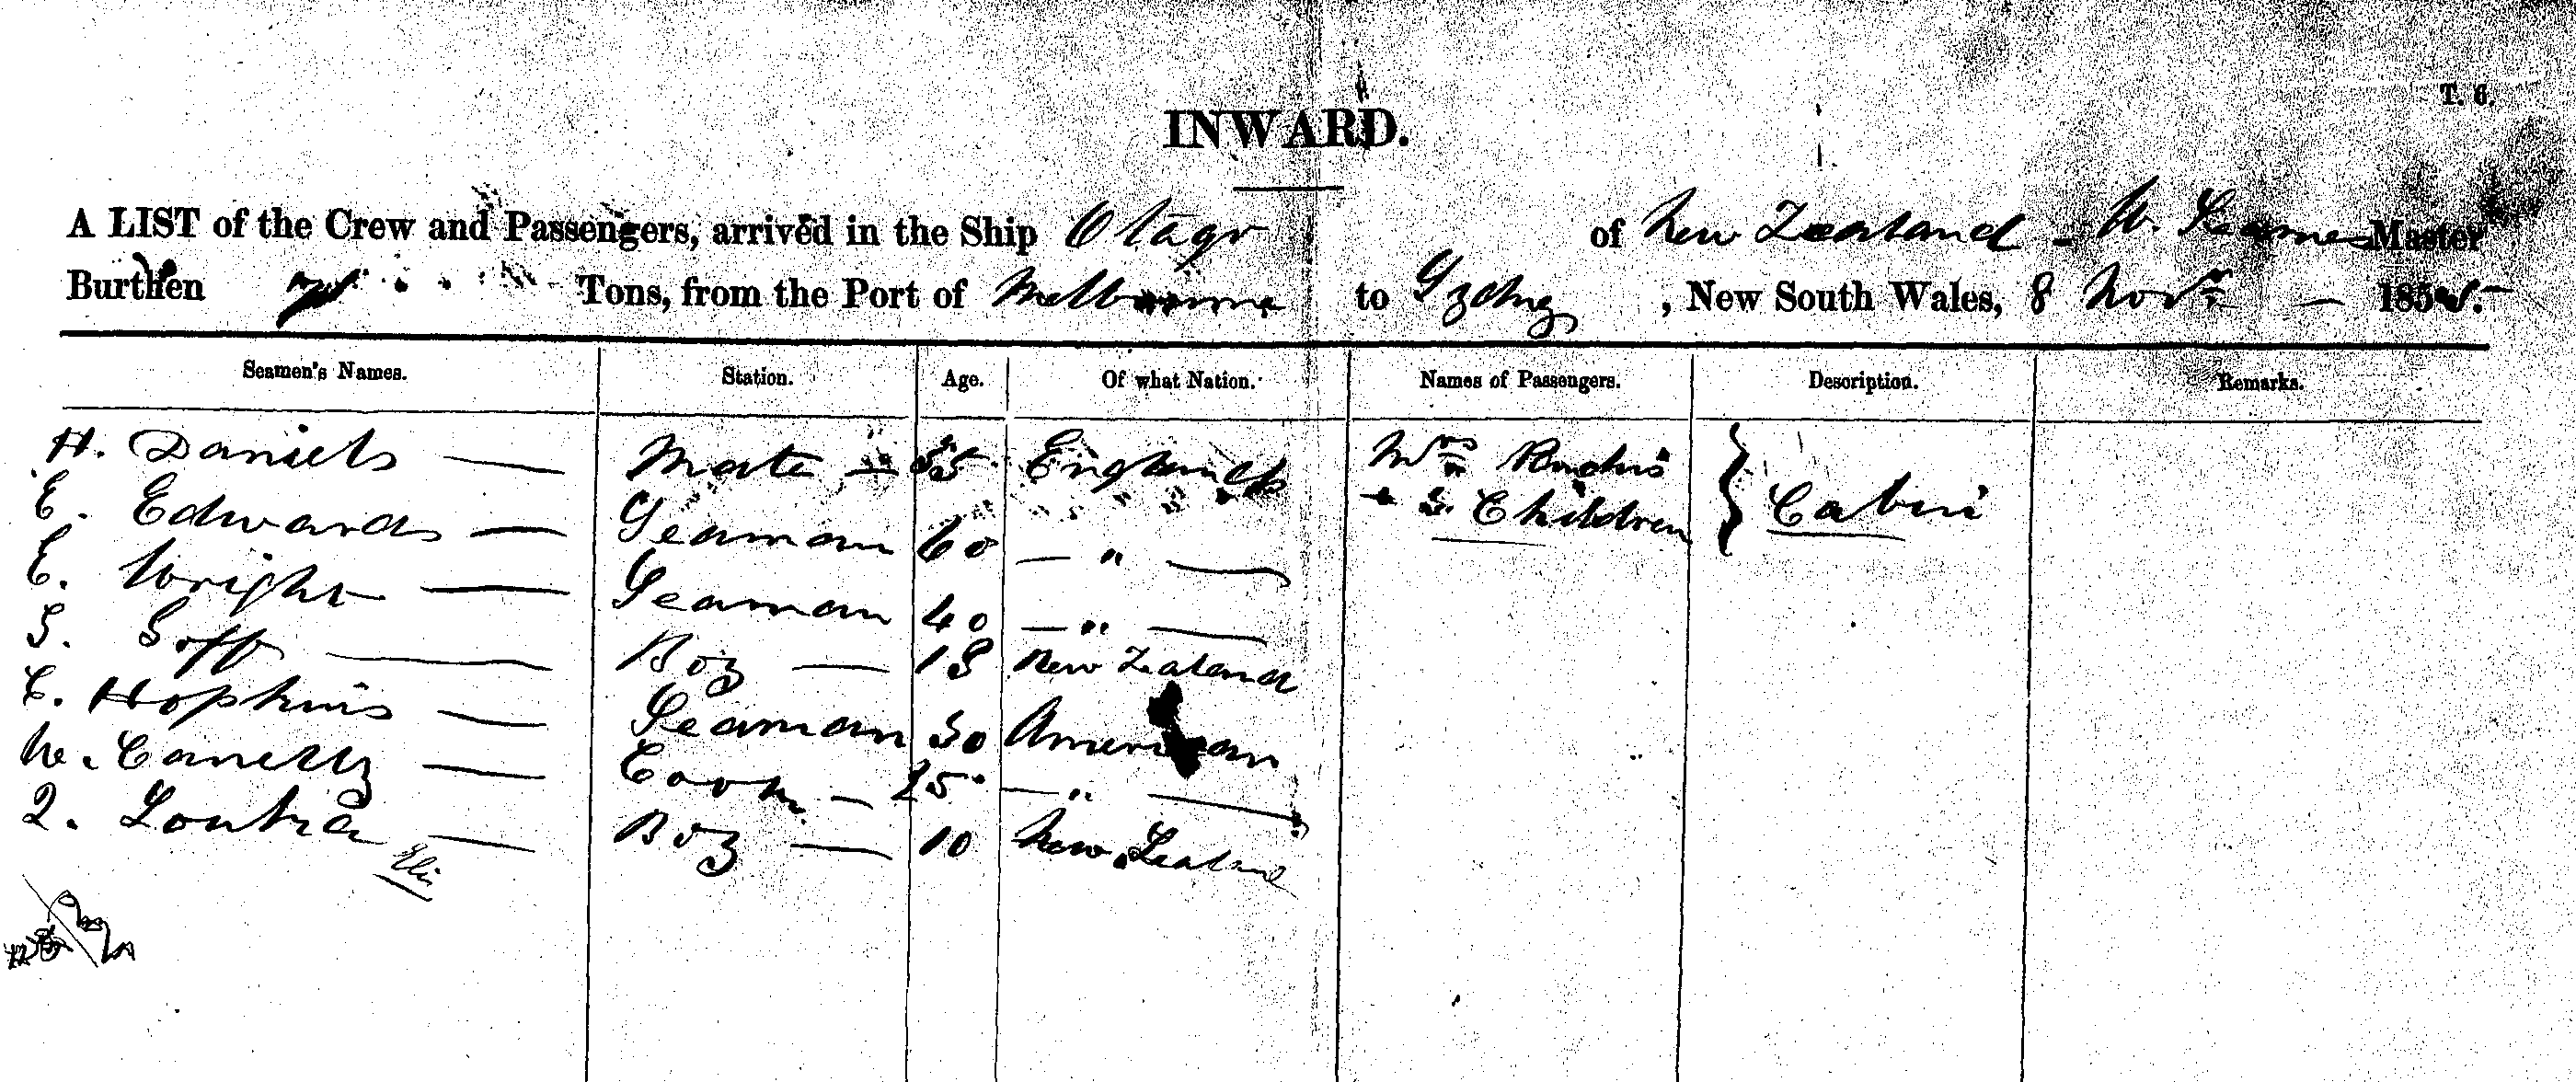 T. 6.
INWARD.
A LIST of the Crew and Passengers, arrived in the Ship Otago of New Zealand - W. Master
Burthen Tons, from the Port of Melbourne to Sydney, New South Wales, 8 Novr — 185
Seamen's Names. Station. Age. Of what Nation. Names of Passengers. Description. Remarks.
H. Daniels — Mate — 55 England Mrs
E. Edwards — Seaman 60 — " — + Children } Cabin
E. Wright — Seaman 40 — " —
G. Goff — Boy — 18 New Zealand
C. Hopkins — Seaman 30 American
— Cook — 25 — " —
Boy — 10 New Zealand